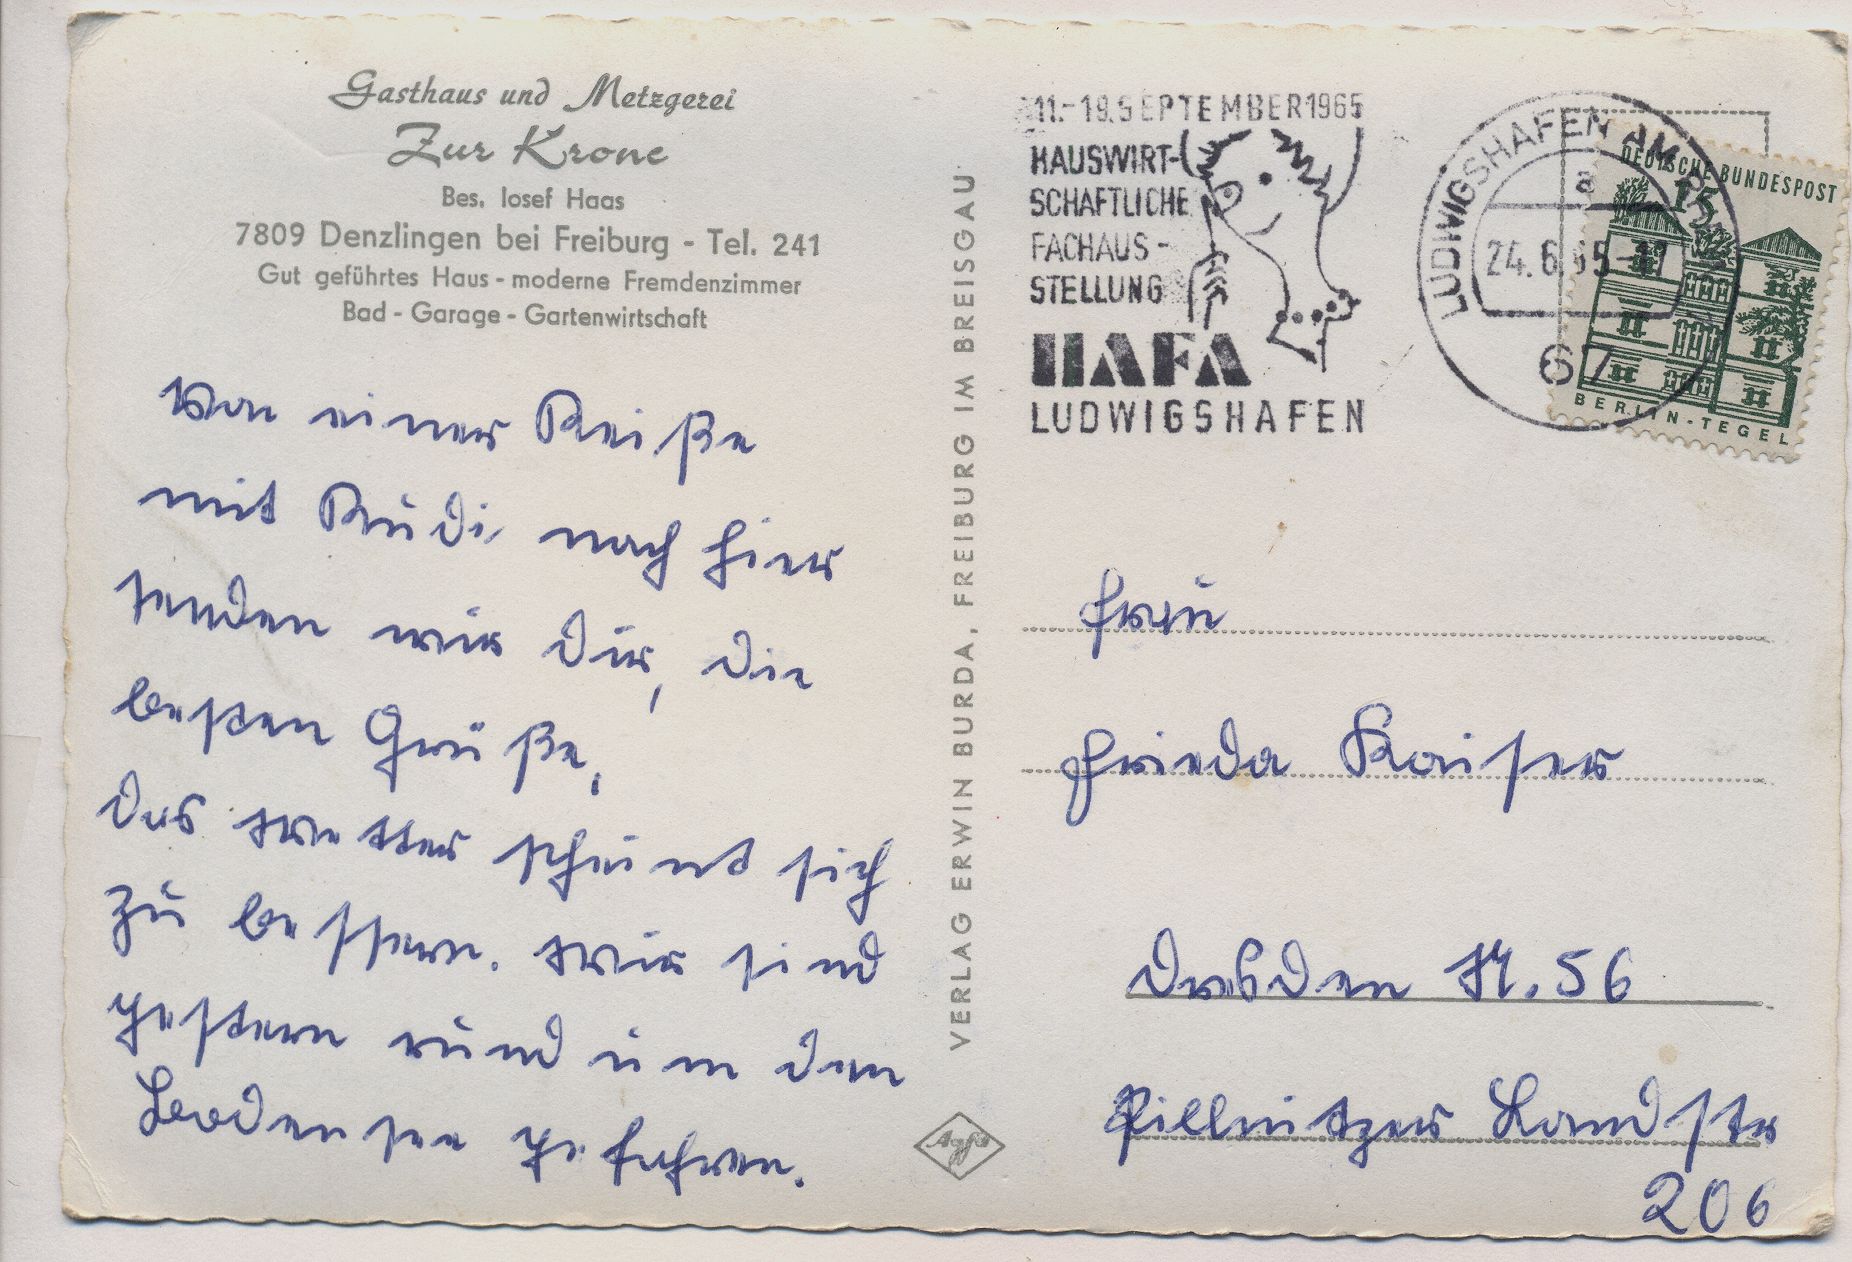 Gasthaus und Metzgerei
Zur Krone
Bes. Josef Haas
7809 Denzlingen bei Freiburg - Tel. 241
Gut geführtes Haus - moderne Fremdenzimmer
Bad - Garage - Gartenwirtschaft
Von einer Reiße
mit Rudi nach hier
senden wir dir, die
besten Grüße,
das Wetter scheint sich
zu bessern. Wir sind
gestern rund um den
Bodensee gefahren.
VERLAG ERWIN BURDA, FREIBURG IM BREISGAU
Agfa
11.-19. SEPTEMBER 1965
HAUSWIRT-
SCHAFTLICHE
FACHAUS-
STELLUNG
HAFA
LUDWIGSHAFEN
LUDWIGSHAFEN AM
a
24.6.65-
67
DEUTSCHE BUNDESPOST
15
BERLIN-TEGEL
Frau
Frieda Kaiser
Dresden N. 56
Pillnitzer Landstr
206